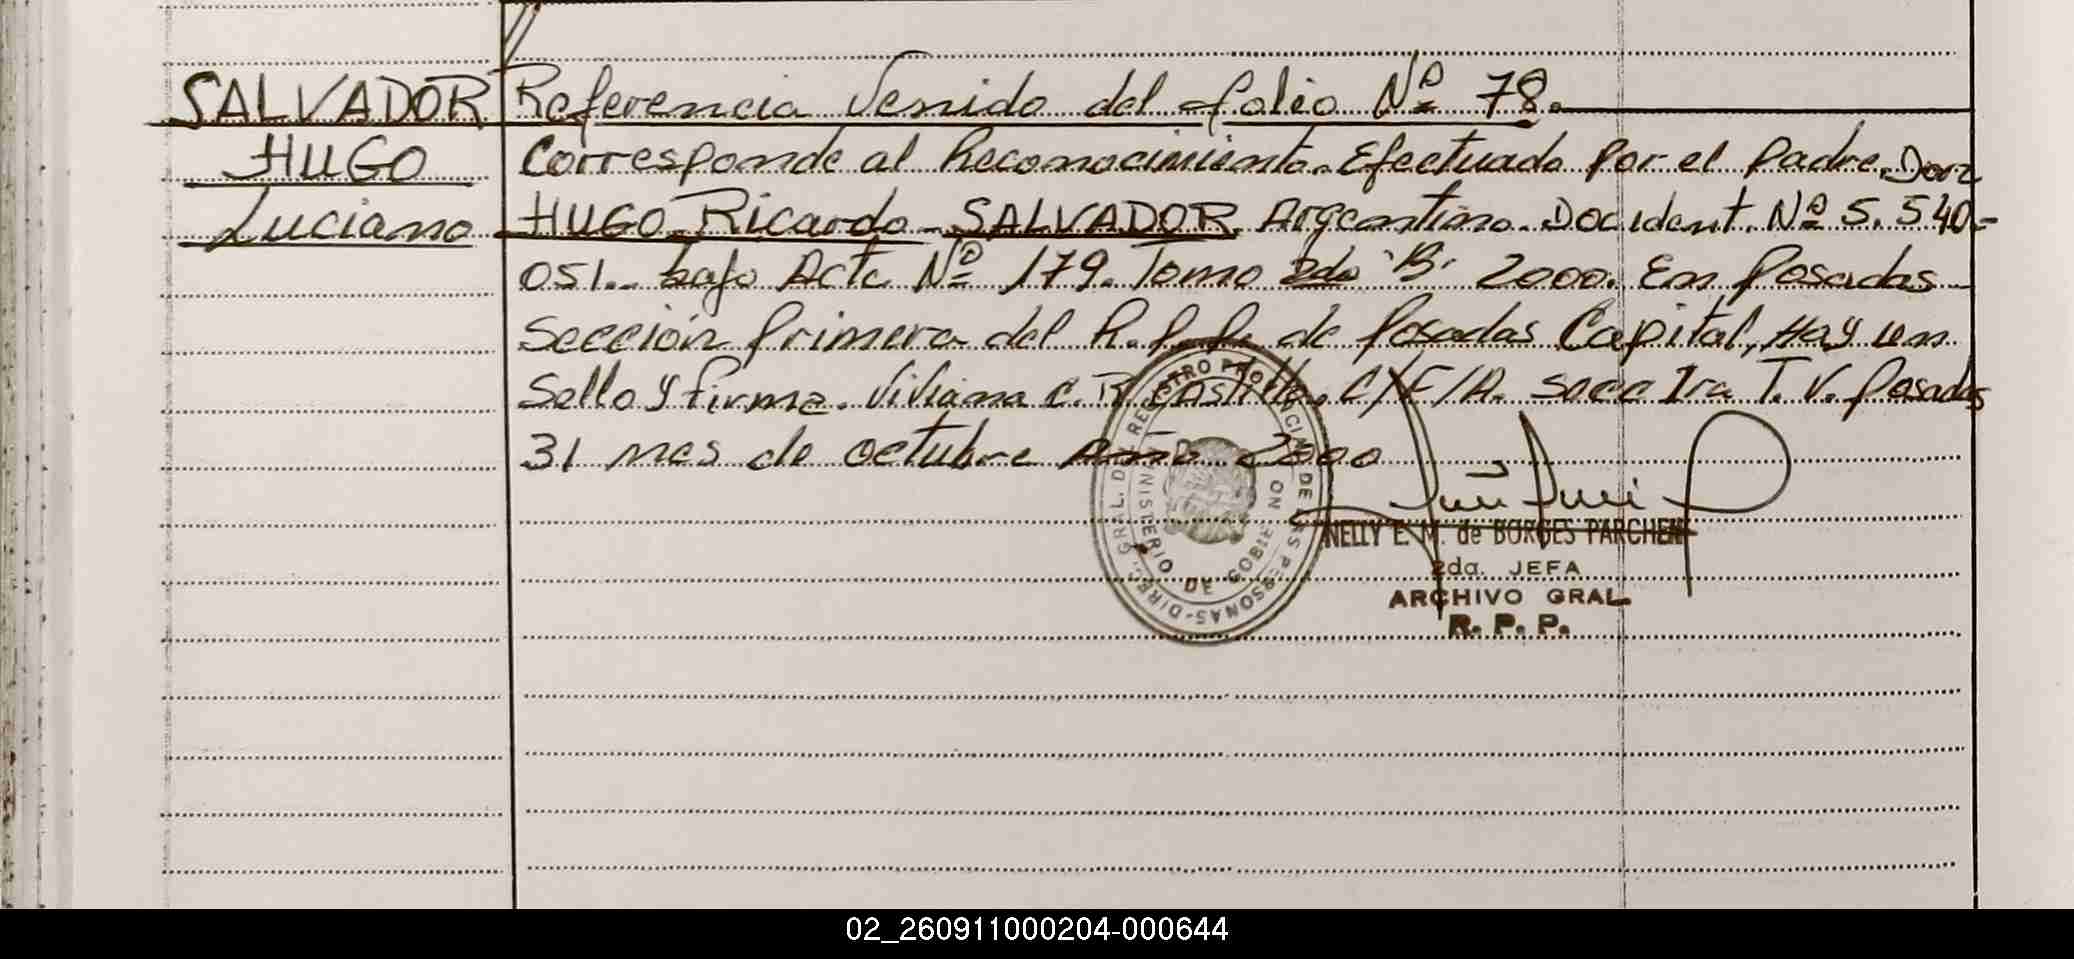 SALVADOR Referencia Venido del folio Nº 78.
HUGO Corresponde al Reconocimiento. Efectuado por el Padre. Don
Luciano HUGO Ricardo SALVADOR. Argentino. Doc ident. Nº 5.540-
051. bajo Acta Nº 179. Tomo 2do "B" 2000. En Posadas
Sección Primera del R.P.P. de Posadas Capital, Hay un
Sello y firma. Viviana C. R. Castillo. C/F/A. Secc 1ra T.V. Posadas
31 mes de octubre Año 2000
DIREC. GRAL. DEL REGISTRO PROVINCIAL DE LAS PERSONAS
MINISTERIO DE GOBIERNO
NELLY E. M. de BORGES PARCHEN
2da. JEFA
ARCHIVO GRAL
R. P. P.
02_260911000204-000644